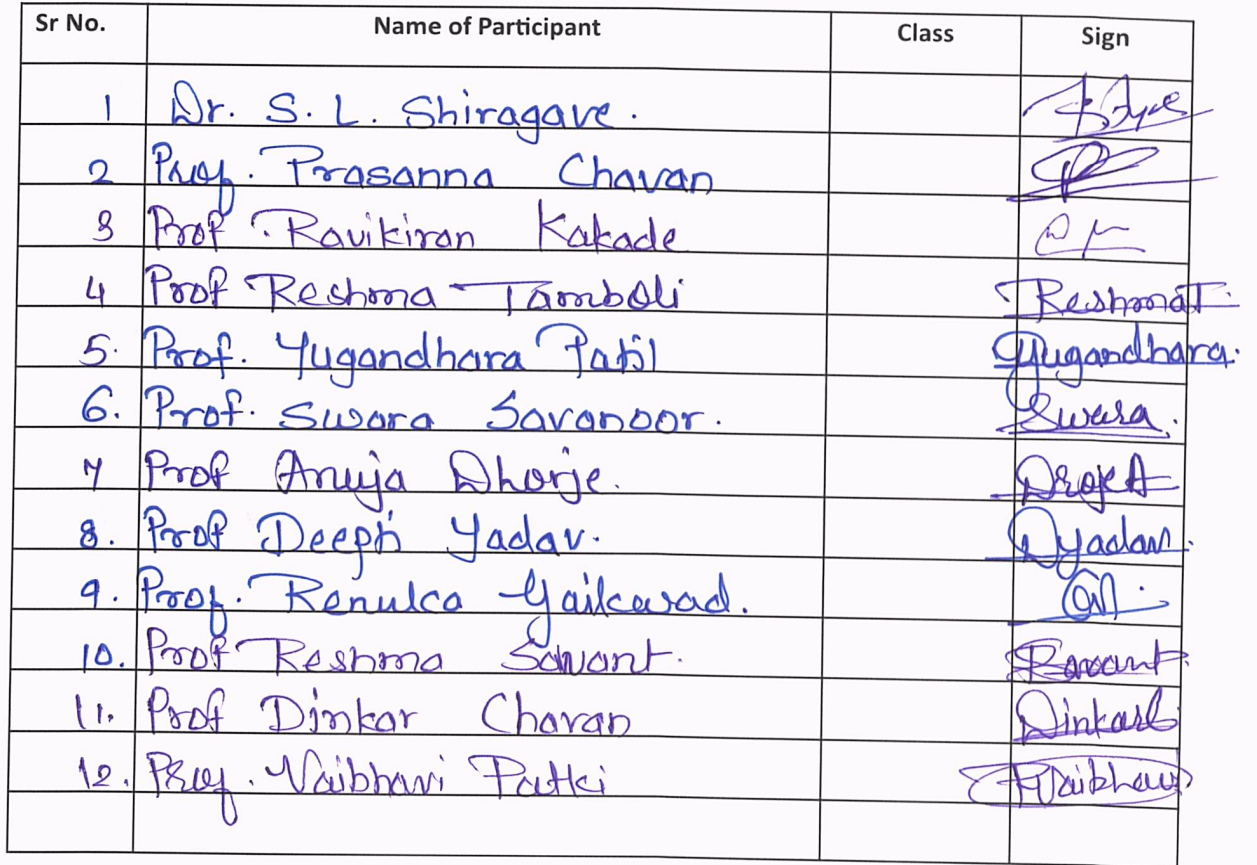 Sr No. Name of Participant Class Sign
1 Dr. S. L. Shiragave.
2 Prof. Prasanna Chavan
3 Prof. Ravikiran Kakade
4 Prof Reshma Tamboli ReshmaT.
5. Prof. Yugandhara Patil Yugandhara.
6. Prof. Swara Savanoor. Swara.
7 Prof Anuja Dhorje.
8. Prof Deepti Yadav. DYadav.
9. Prof. Renuka Gaikawad.
10. Prof Reshma Sawant. RSawant.
11. Prof Dinkar Chavan Dinkar
12. Prof. Vaibhavi Patki Vaibhavi